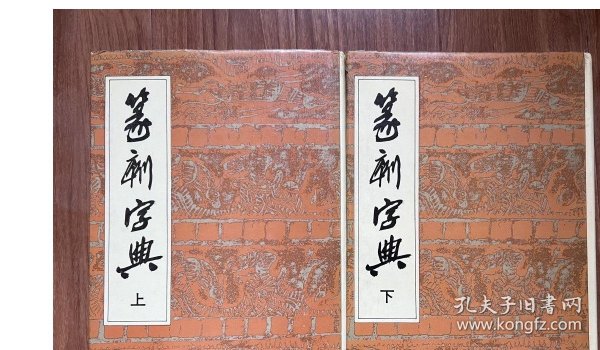 篆刻字典
上
篆刻字典
下
孔夫子旧书网
www.kongfz.com